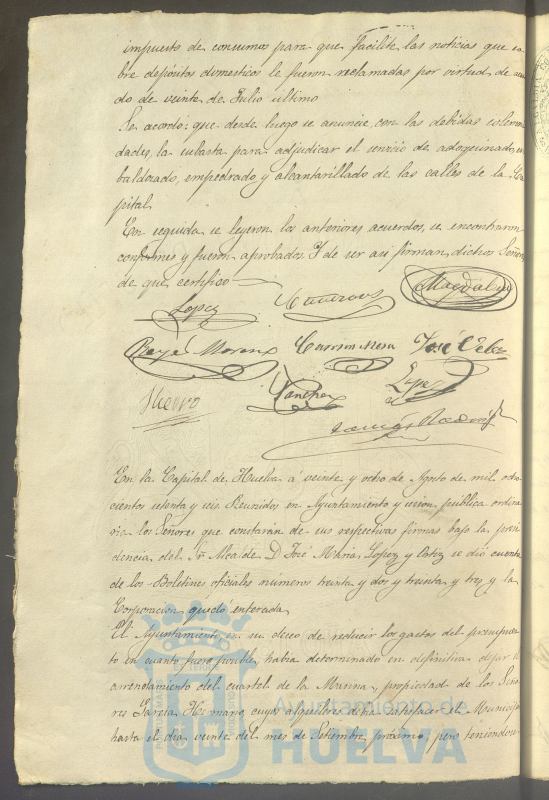 impuesto de consumos para que facilite las noticias que so-
bre depósitos domesticos le fueron reclamadas por virtud de acuer
do de veinte de Julio último
Se acordó: que desde luego se anuncie, con las debidas solemni
dades, la subasta para adjudicar el servicio de adoquinado, em
baldosado, empedrado y alcantarillado de las calles de la Ca
pital.
En seguida se leyeron los anteriores acuerdos, se encontraron
conformes y fueron aprobados. Y de ser así firman, dichos Señores
de que certifico
Lopez
Magdalena
Moreno
Carrion Mena
José Velez
Hierro
Sanchez
En la Capital de Huelva á veinte y ocho de Agosto de mil ocho
cientos setenta y seis Reunidos en Ayuntamiento y sesion pública ordina
ria los Señores que constarán de sus respectivas firmas bajo la presi
dencia del Sr. Alcalde D. José Maria Lopez y Ortiz se dió cuenta
de los Boletines oficiales numeros treinta y dos y treinta y tres y la
Corporacion quedó enterada
El Ayuntamiento en su deseo de reducir los gastos del presupues
to en cuanto fuere posible, habia determinado en definitiva dejar el
arrendamiento del cuartel de la Marina, propiedad de los Seño
res Garcia Hermano, cuyos alquileres debia satisfacer el Municipio
hasta el dia veinte del mes de Setiembre próximo, pero teniendose
Ayuntamiento de
HUELVA